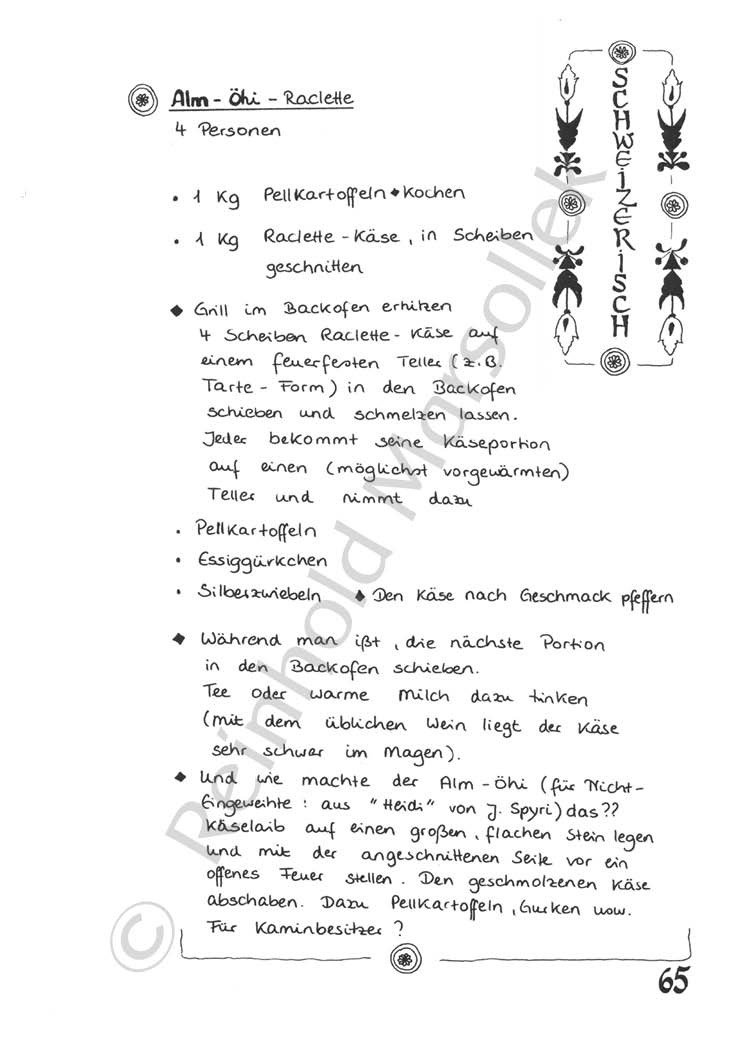 Alm-Öhi-Raclette
4 Personen
SCHWEIZERISCH
• 1 Kg Pellkartoffeln ◆ Kochen
• 1 Kg Raclette-Käse, in Scheiben
geschnitten
◆ Grill im Backofen erhitzen
4 Scheiben Raclette-Käse auf
einem feuerfesten Teller (z.B.
Tarte-Form) in den Backofen
schieben und schmelzen lassen.
Jeder bekommt seine Käseportion
auf einen (möglichst vorgewärmten)
Teller und nimmt dazu
• Pellkartoffeln
• Essiggürkchen
• Silberzwiebeln ◆ Den Käse nach Geschmack pfeffern
◆ Während man ißt, die nächste Portion
in den Backofen schieben.
Tee oder warme Milch dazu tinken
(mit dem üblichen Wein liegt der Käse
sehr schwer im Magen).
◆ Und wie machte der Alm-Öhi (für Nicht-
Eingeweihte: aus "Heidi" von J. Spyri) das??
Käselaib auf einen großen, flachen Stein legen
und mit der angeschnittenen Seite vor ein
offenes Feuer stellen. Den geschmolzenen Käse
abschaben. Dazu Pellkartoffeln, Gurken usw.
Für Kaminbesitzer?
65
© Reinhold Marsollek